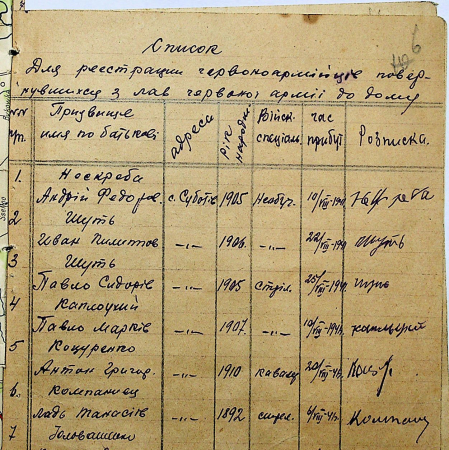 6
Список
Для реестрации червоноармійців повер-
нувшихся з лав червоної армії до дому
№№ п.п. Призвище имя по батькові адреса рік народж. Війск. спеціальн. час прибут. Розписка.
1 Носкреба
Андрій Федоров. с. Суботів 1905 Необуч. 10/VIII-194
2 Шуть
Иван Пилипов -"- 1906. -"- 22/VIII-194 Шуть
3 Шуть
Павло Сидорів -"- 1905 стріл. 25/VIII-194
4 Каплоухий
Павло Марків -"- 1907. -"- 10/VIII-194
5 Коцуренко
Антон Григор. -"- 1910 20/VIII-41
6. Компаниец
Танасів -"- 1892 6/VIII-41 Компан
7 Головашенко